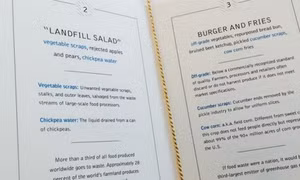 2
"LANDFILL SALAD"
vegetable scraps, rejected apples
and pears, chickpea water
Vegetable scraps: Unwanted vegetable scraps,
stalks, and outer leaves, salvaged from the waste
streams of large-scale food processors.
Chickpea water: The liquid drained from a can
of chickpeas.
More than a third of all food produced
worldwide goes to waste. Approximately 28
percent of the world's farmland produces
3
BURGER AND FRIES
off-grade vegetables, repurposed bread bun,
bruised beet ketchup, pickled cucumber scraps,
cow corn fries
Off-grade: Below a commercially recognized standard
of quality. Farmers, processors and retailers often
discard or do not harvest product if it does not
meet specifications.
Cucumber scraps: Cucumber ends removed by the
pickle industry to allow for uniform slices.
Cow corn: a.k.a. field corn. Different from sweet corn,
this crop does not feed people directly but represents
about 99% of the 90+ million acres of corn grown in
the U.S.
If food waste were a nation, it would
third-largest emitter of greenhouse gas